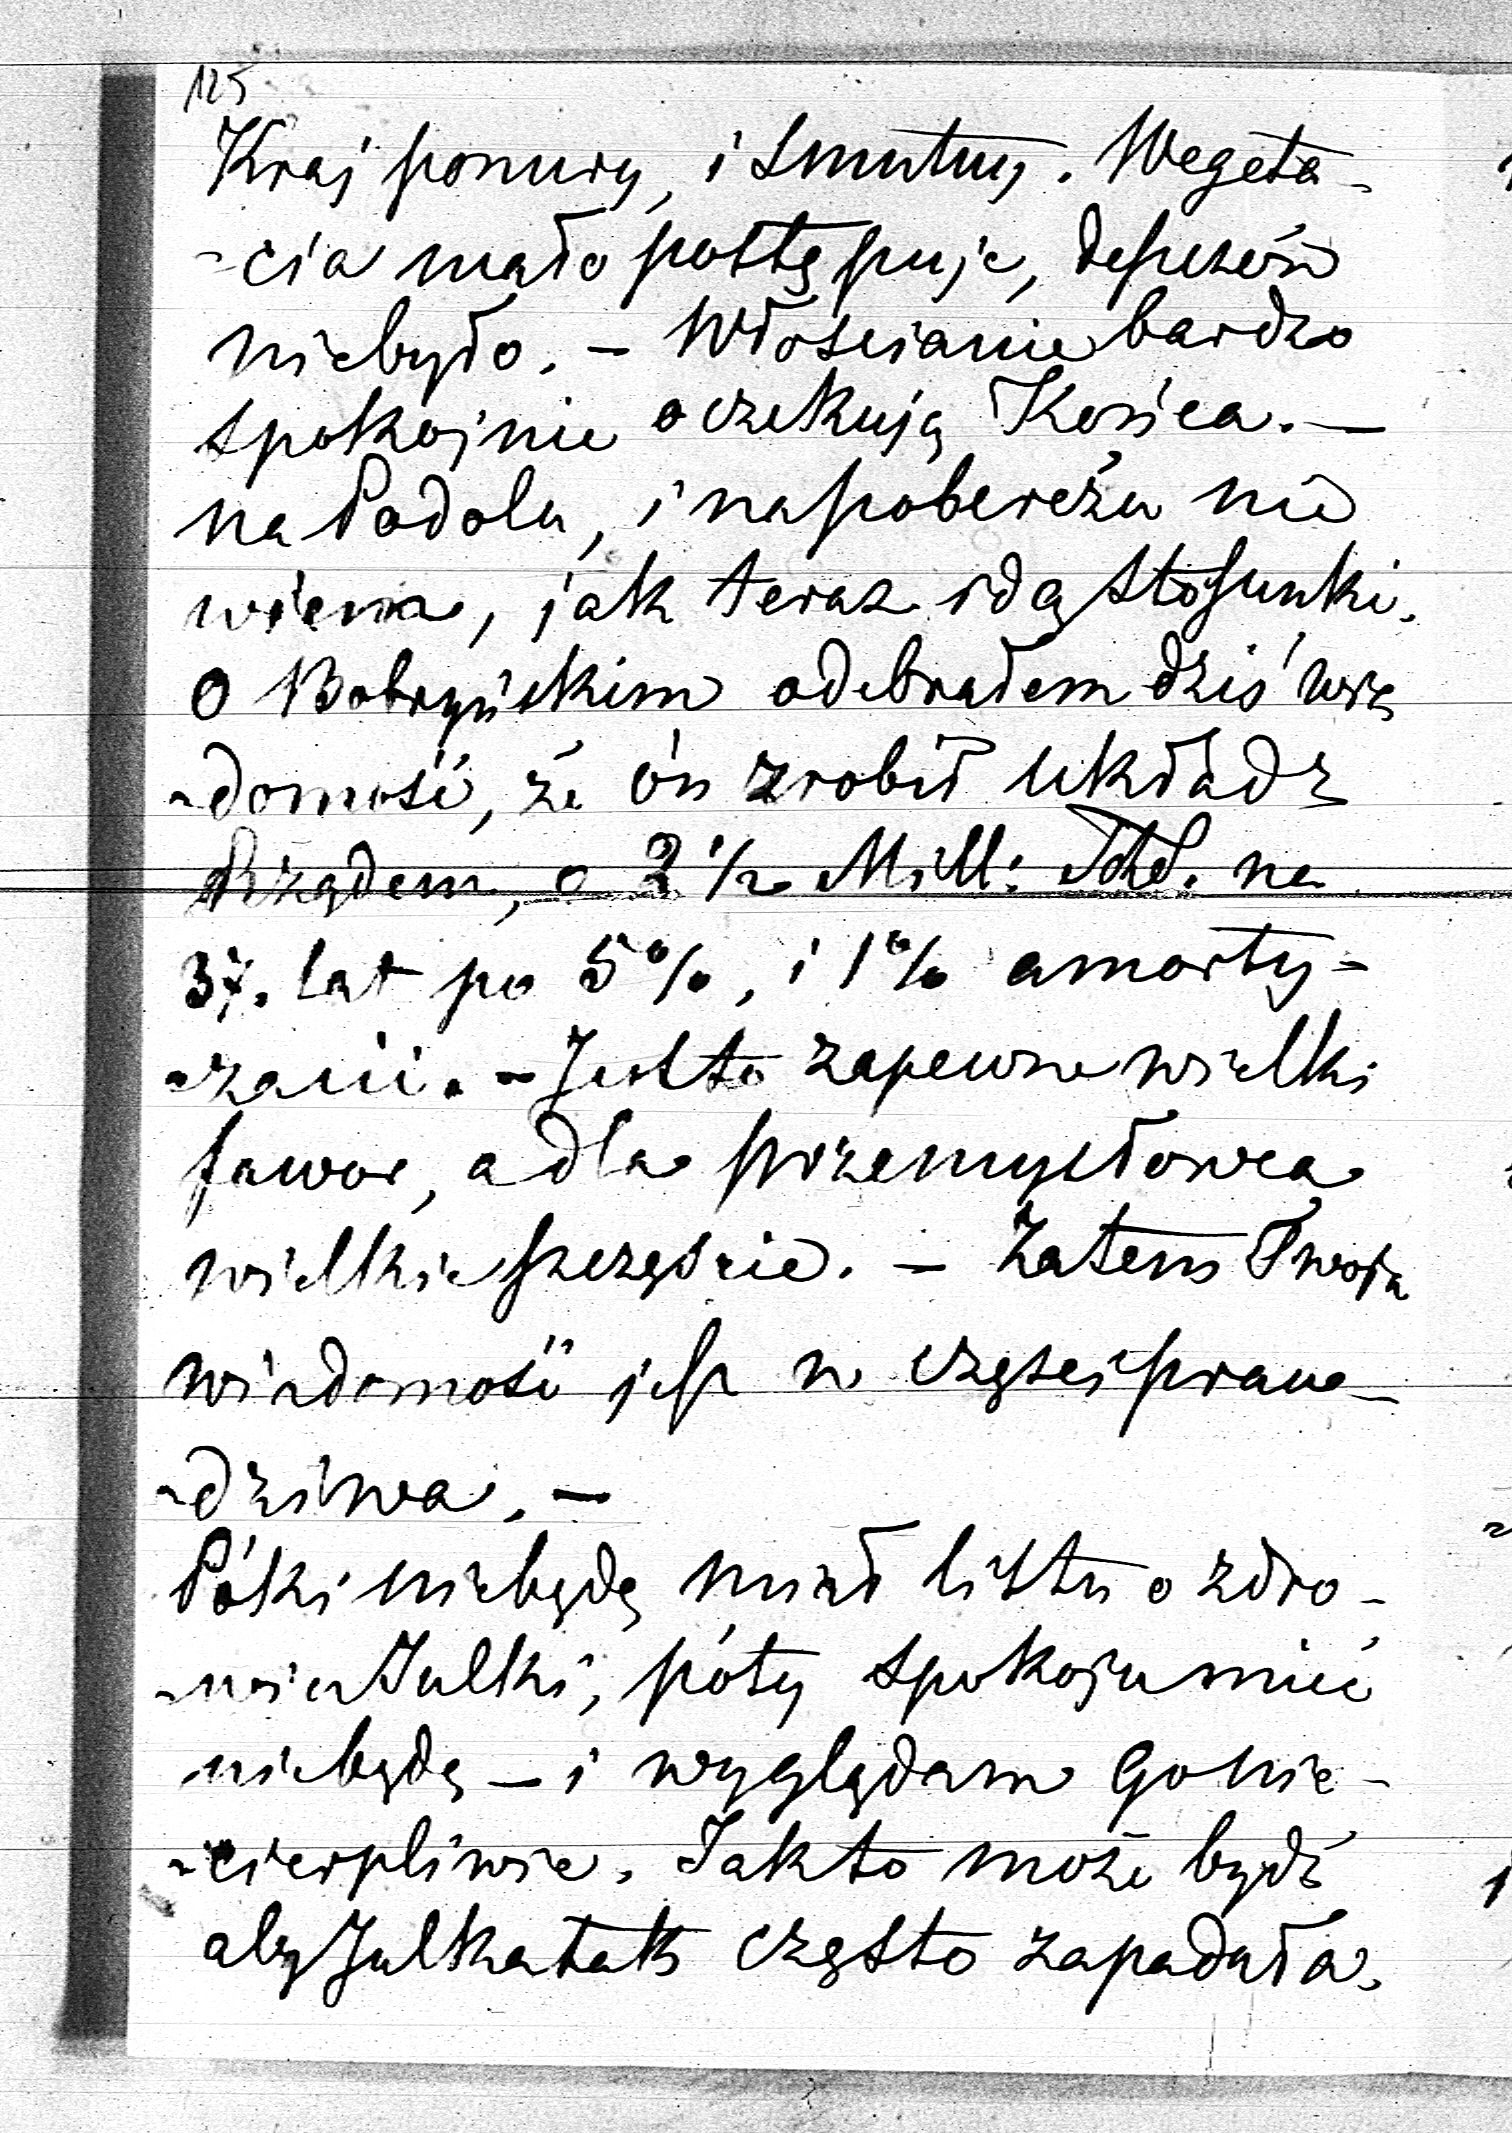 125
Kraj ponury, i smutny. Wegeta-
-cia mało postępuje, deszczów
niebyło. - Włościanie bardzo
spokojnie oczekują Końca. -
na Podolu, i na pobereżu nie
wiem, jak teraz idą stosunki.
O Bobryńskim odebrałem dziś wie
-domość, że ón zrobił układ z
Rządem, o 2 1/2 Mill: na
37. lat po 5%, i 1% amorty-
-zacii. - Jestto zapewne wielki
fawor, a dla przemysłowca
wielkie szczęście. - Zatem Twoja
wiadomość jest w części praw-
-dziwa. -
Póki niebędę miał listu o zdro-
-wiu Julki, póty spokoju mieć
niebędę - i wyglądam go nie-
-cierpliwie. Jakto może bydź
aby Julka tak często zapadała.